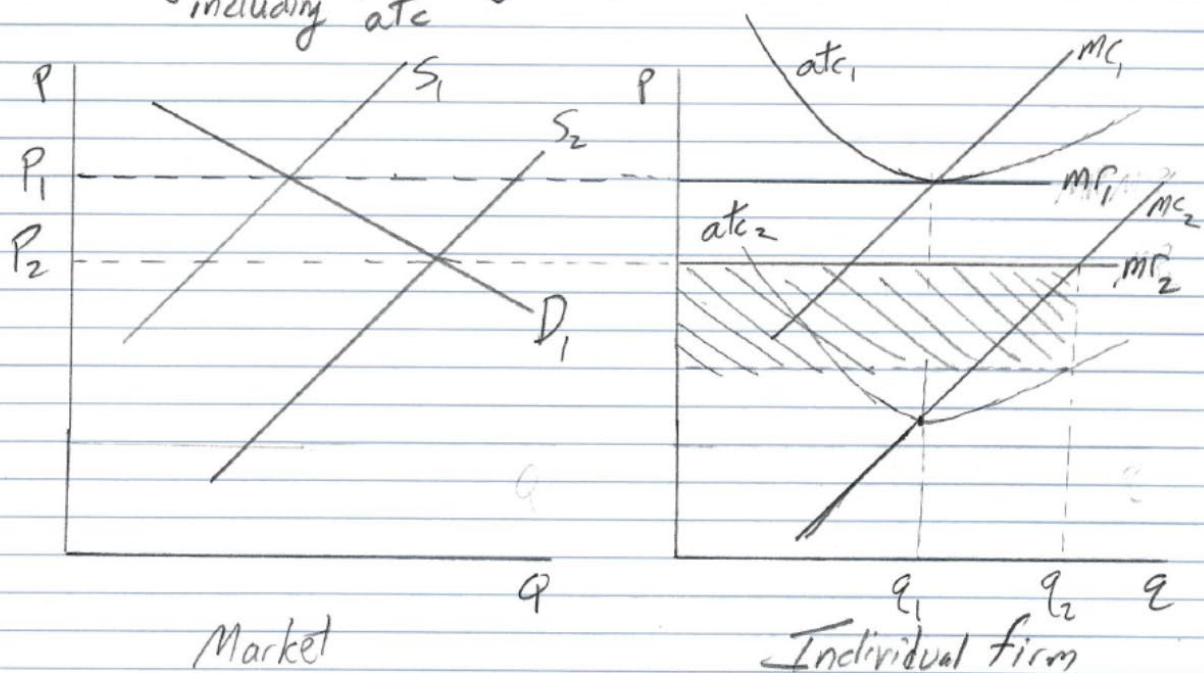 including atc
P
S₁
S₂
P₁
P₂
D₁
Q
Market
P
atc₁
mc₁
mr₁
mc₂
atc₂
mr₂
q₁ q₂ q
Individual firm